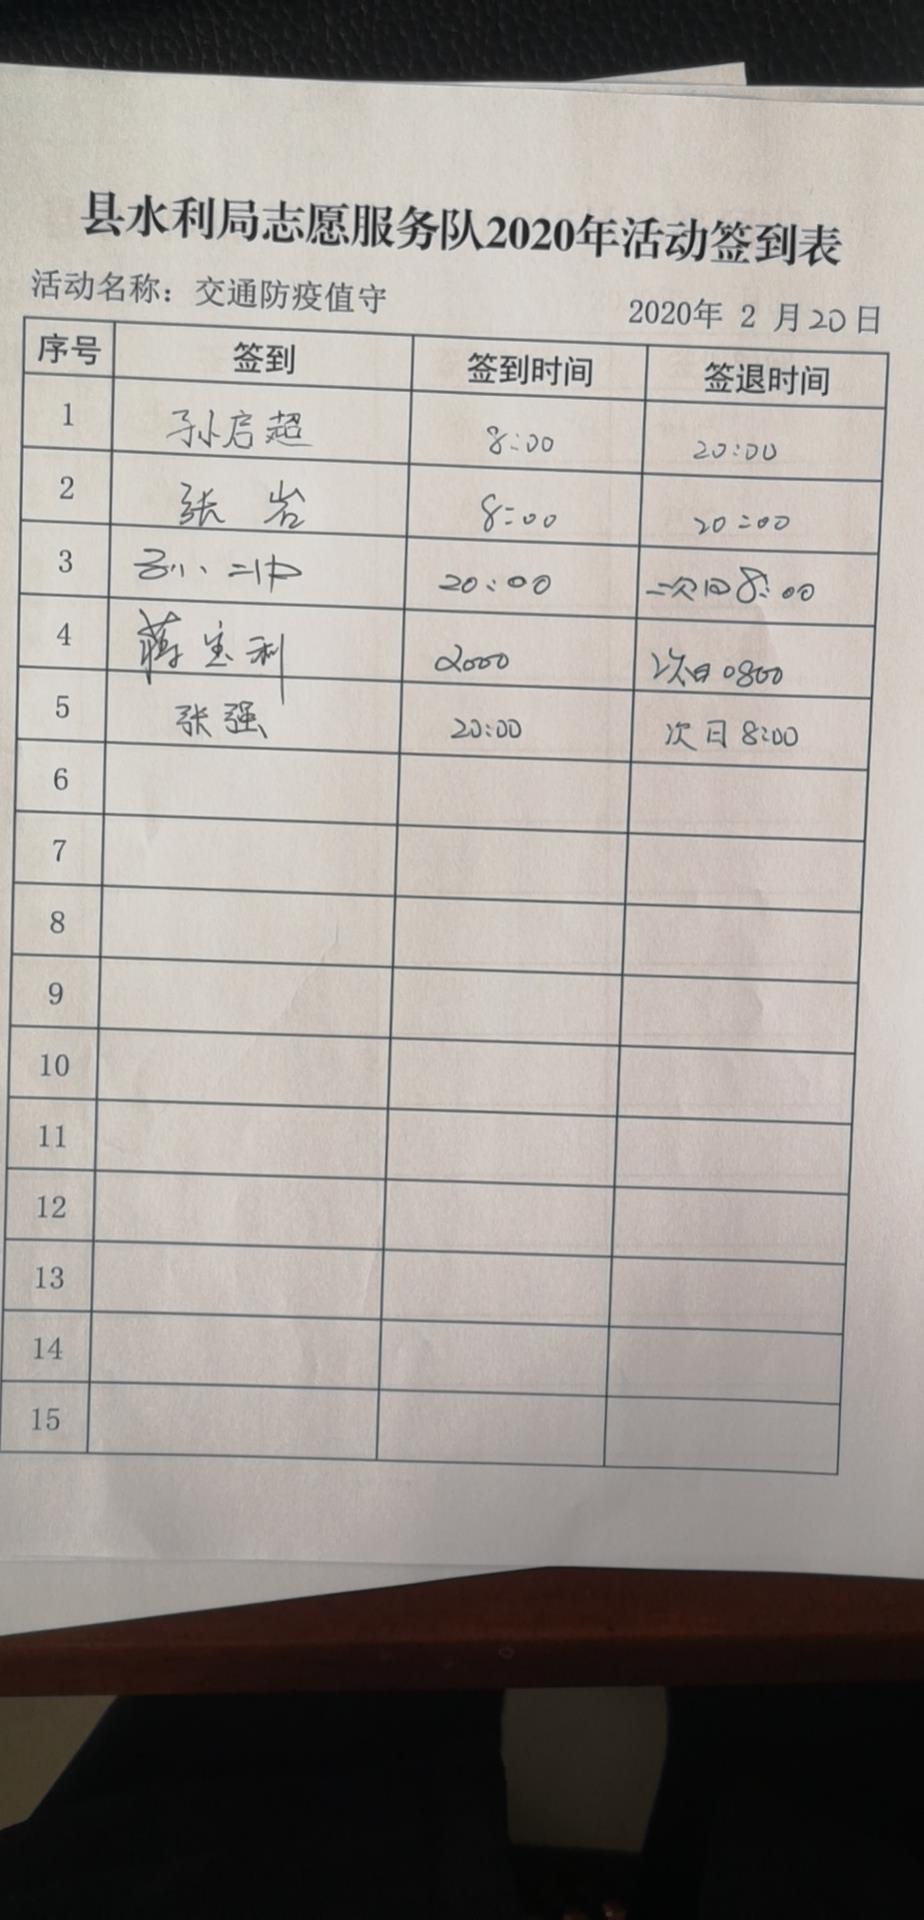 县水利局志愿服务队2020年活动签到表
活动名称：交通防疫值守 2020年 2 月20日
序号 签到 签到时间 签退时间
1 孙启超 8:00 20:00
2 张岩 8:00 20:00
3 20:00 次日8:00
4 蒋宝利 2000 次日0800
5 张强 20:00 次日8:00
6
7
8
9
10
11
12
13
14
15